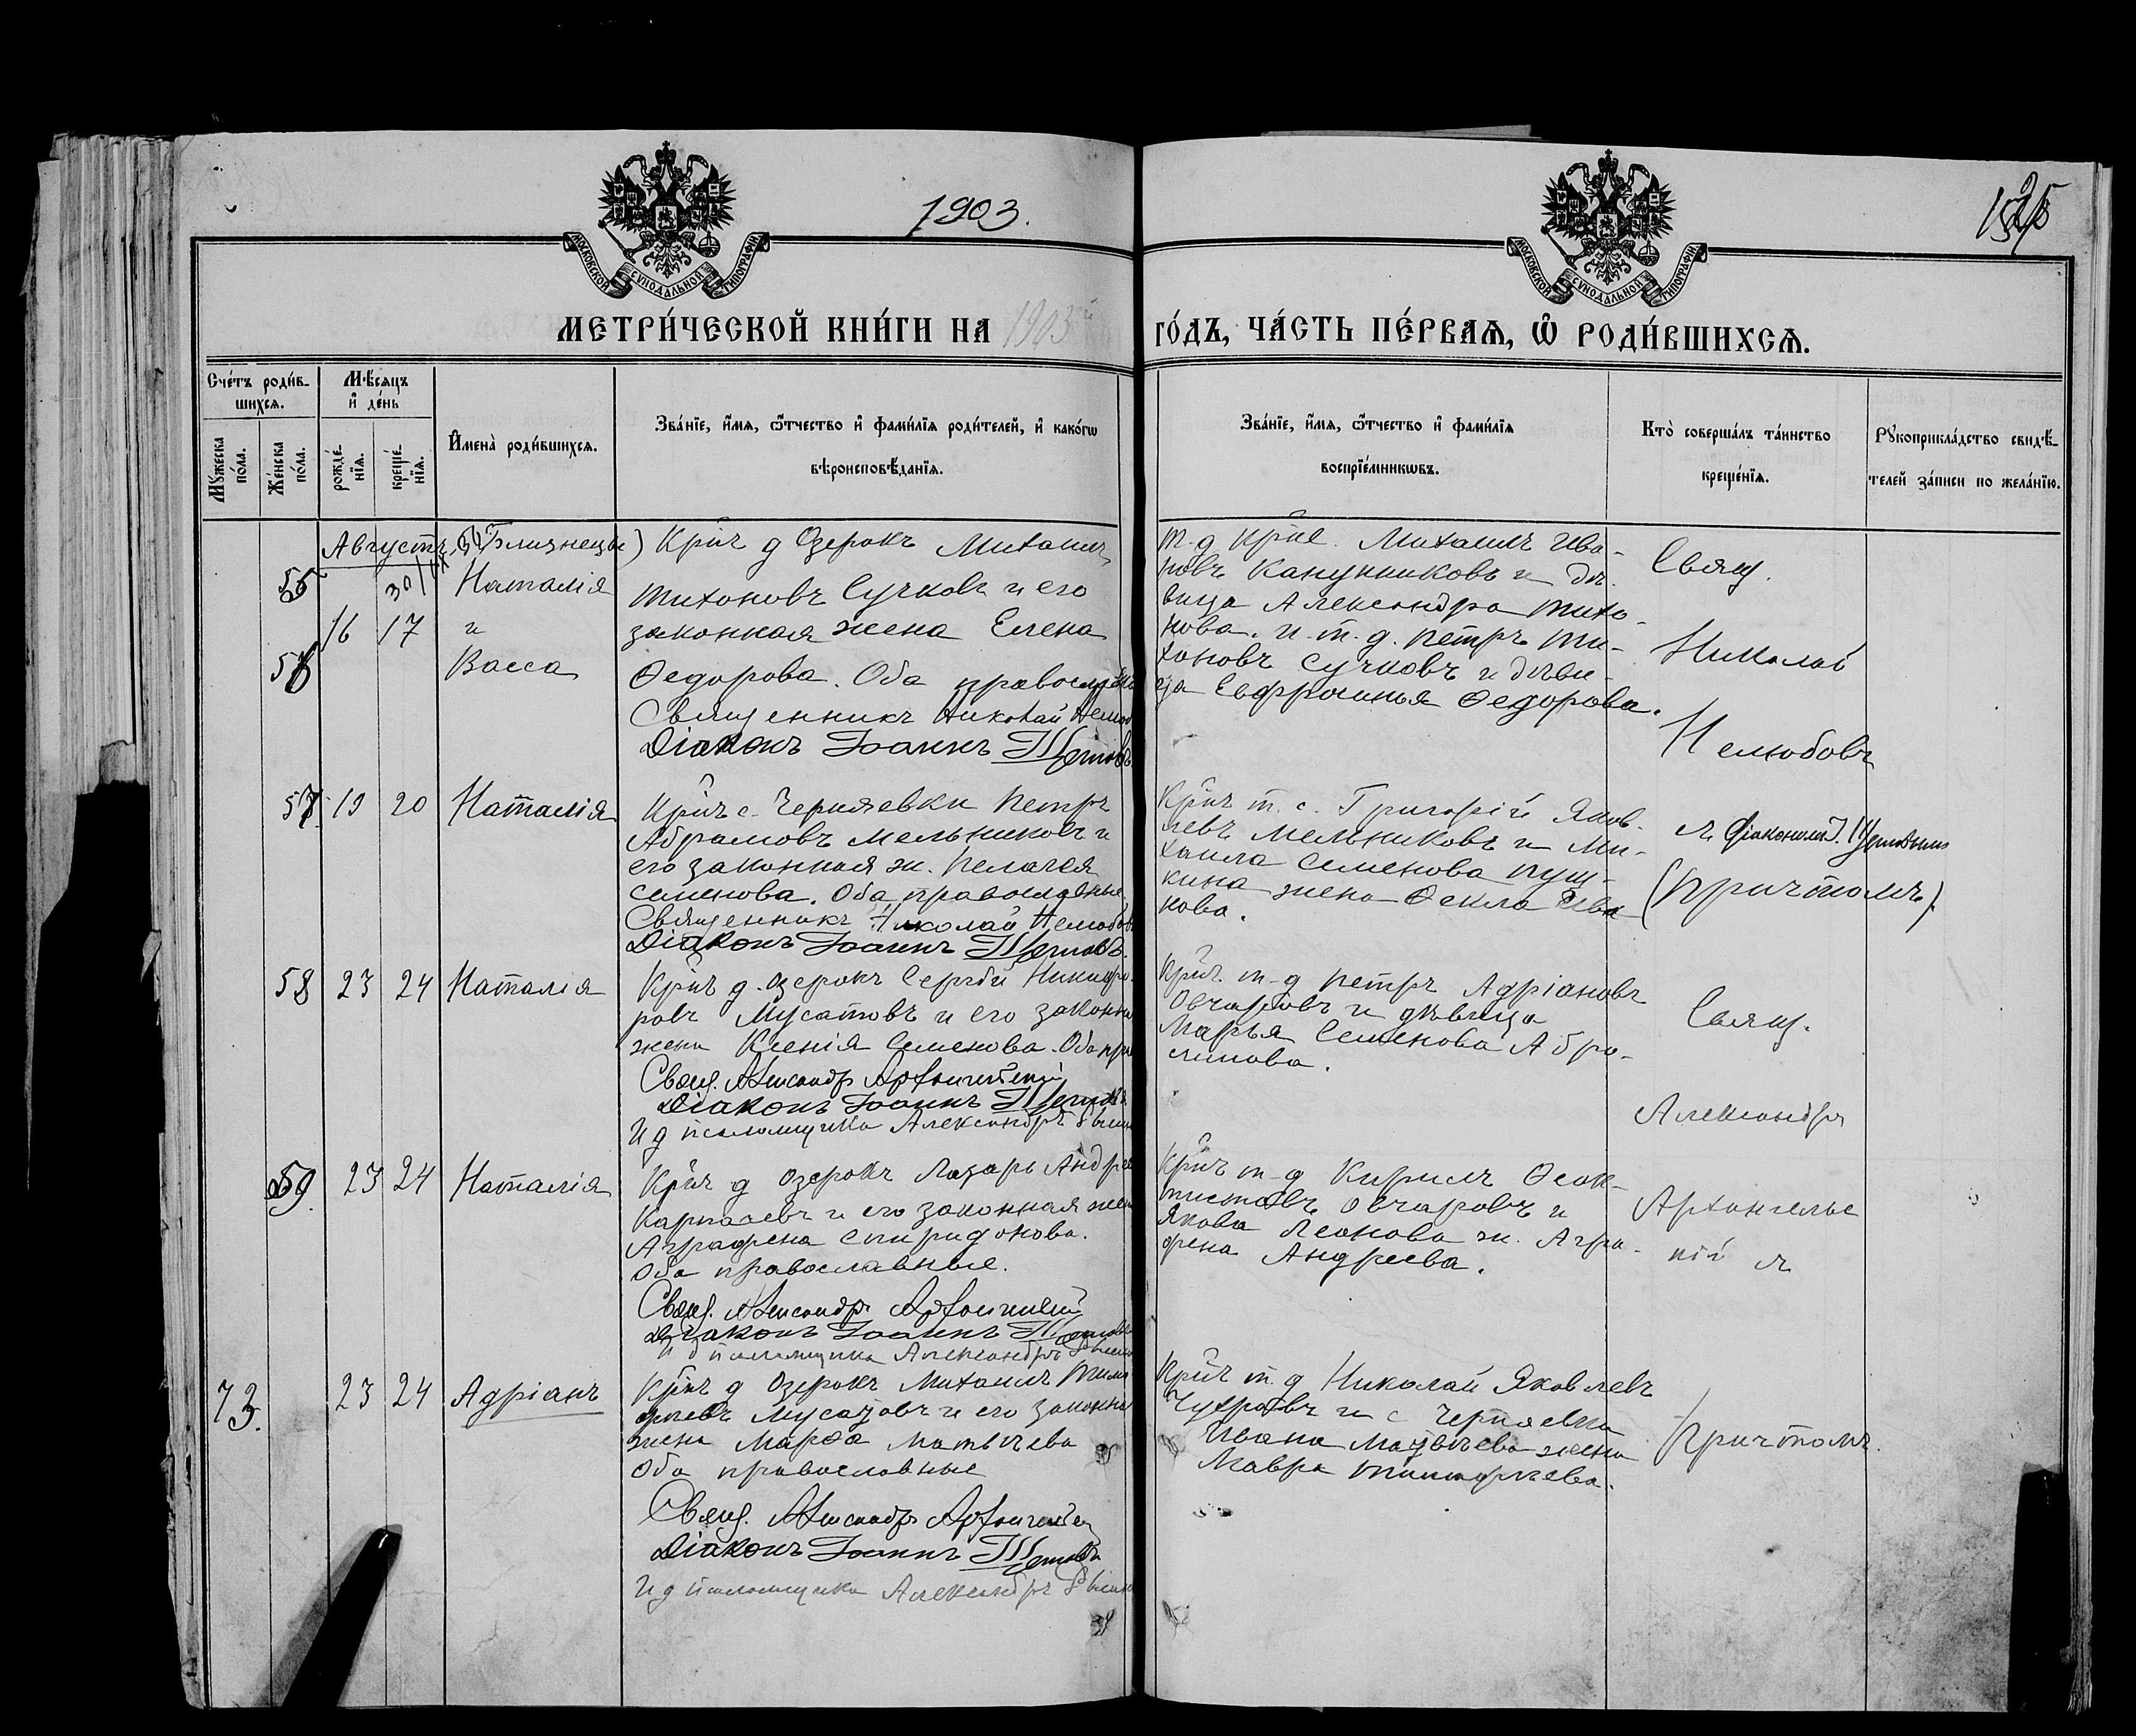 1903.
МОСКОВСКОЙ СУНОДАЛЬНОЙ ТИПОГРАФІИ
МОСКОВСКОЙ СУНОДАЛЬНОЙ ТИПОГРАФІИ
МЕТРИ́ЧЕСКОЙ КНИ́ГИ НА 1903 ГО́ДЪ, ЧА́СТЬ ПЕ́РВАѦ, Ѿ РОДИ́ВШИХСѦ.
Сче́тъ роди́в-
шихсѧ.
Мꙋ́жеска по́ла.
Же́нска по́ла.
Мѣ́сѧцъ и҆ де́нь
рожде́-нїѧ.
креще́-нїѧ.
И҆мена̀ роди́вшихсѧ.
Зва́нїе, и҆́мѧ, ѻ҆́тчество и҆ фами́лїѧ роди́телей, и҆ како́гѡ
вѣроисповѣ́данїѧ.
Зва́нїе, и҆́мѧ, ѻ҆́тчество и҆ фами́лїѧ
воспрїе́мникѡвъ.
Кто̀ соверша́лъ та́инство
креще́нїѧ.
Рꙋкоприкла́дство свидѣ́-
телей за́писи по жела́нїю.
Августъ
55
56
16 17
(Близнецы)
Наталія
и
Васса
Кр̃нъ д Озерокъ Михаилъ
Тихоновъ Сучковъ и его
законная жена Елена
Ѳедорова. Оба
Священникъ Николай
Діаконъ Іоаннъ
т. д. кр̃не. Михаилъ Ива-
новъ Канунниковъ и дѣ-
вица Александра Тихо-
нова. и т. д. Петръ Ти-
хоновъ Сучковъ и дѣви-
ца Евфросинья Ѳедорова.
Свящ.
Николай
Нелюбовъ
57 19 20 Наталія
Кр̃нъ с. Черняевки Петръ
Абрамовъ Мельниковъ и
его законная ж. Пелагея
Семенова. Оба православные
Священникъ Николай Нелюбовъ
Діаконъ Іоаннъ
Кр̃нъ т. с. Григорій Яков-
левъ Мельниковъ и Ми-
хаила Семенова Пуш-
кина жена Ѳекла Ива
нова.
съ діакономъ І.
(Причтомъ).
58 23 24 Наталія
Кр̃нъ д. Озерокъ Сергѣй Никифо-
ровъ Мусатовъ и его законн
жена Ксенія Семенова. Оба пр
Свящ. Александръ Архангельскій
Діаконъ Іоаннъ
И д псаломщика Александръ
Кр̃нъ. т-д Петръ Адріановъ
Овчаровъ и дѣвица
Марья Семенова Абро-
симова.
Свящ.
Александръ
59. 23 24 Наталія
Кр̃нъ д Озерокъ Лазарь Андрее
Карпасевъ и его законная жен
Аграфена Спиридонова.
Оба православные.
Свящ. Александръ Архангельскій
Діаконъ Іоаннъ
И д псаломщика Александръ
Кр̃нъ т-д Кирилъ Ѳеок-
тистовъ Овчаровъ и
Якова Леонова ж. Агра-
фена Андреева.
Архангельс
кій съ
73. 23 24 Адріанъ
Кр̃нъ д Озерокъ Михаилъ Тимо
феевъ Мусатовъ и его законна
жена Марѳа Матвѣева
Оба православные
Свящ. Александръ Архангельскій
Діаконъ Іоаннъ
И д псаломщика Александръ
Кр̃нъ т. д Николай Яковлевъ
Чухровъ и с Черняевки
Ивана Матвѣева жена
Мавра Тимофеева.
Причтомъ.